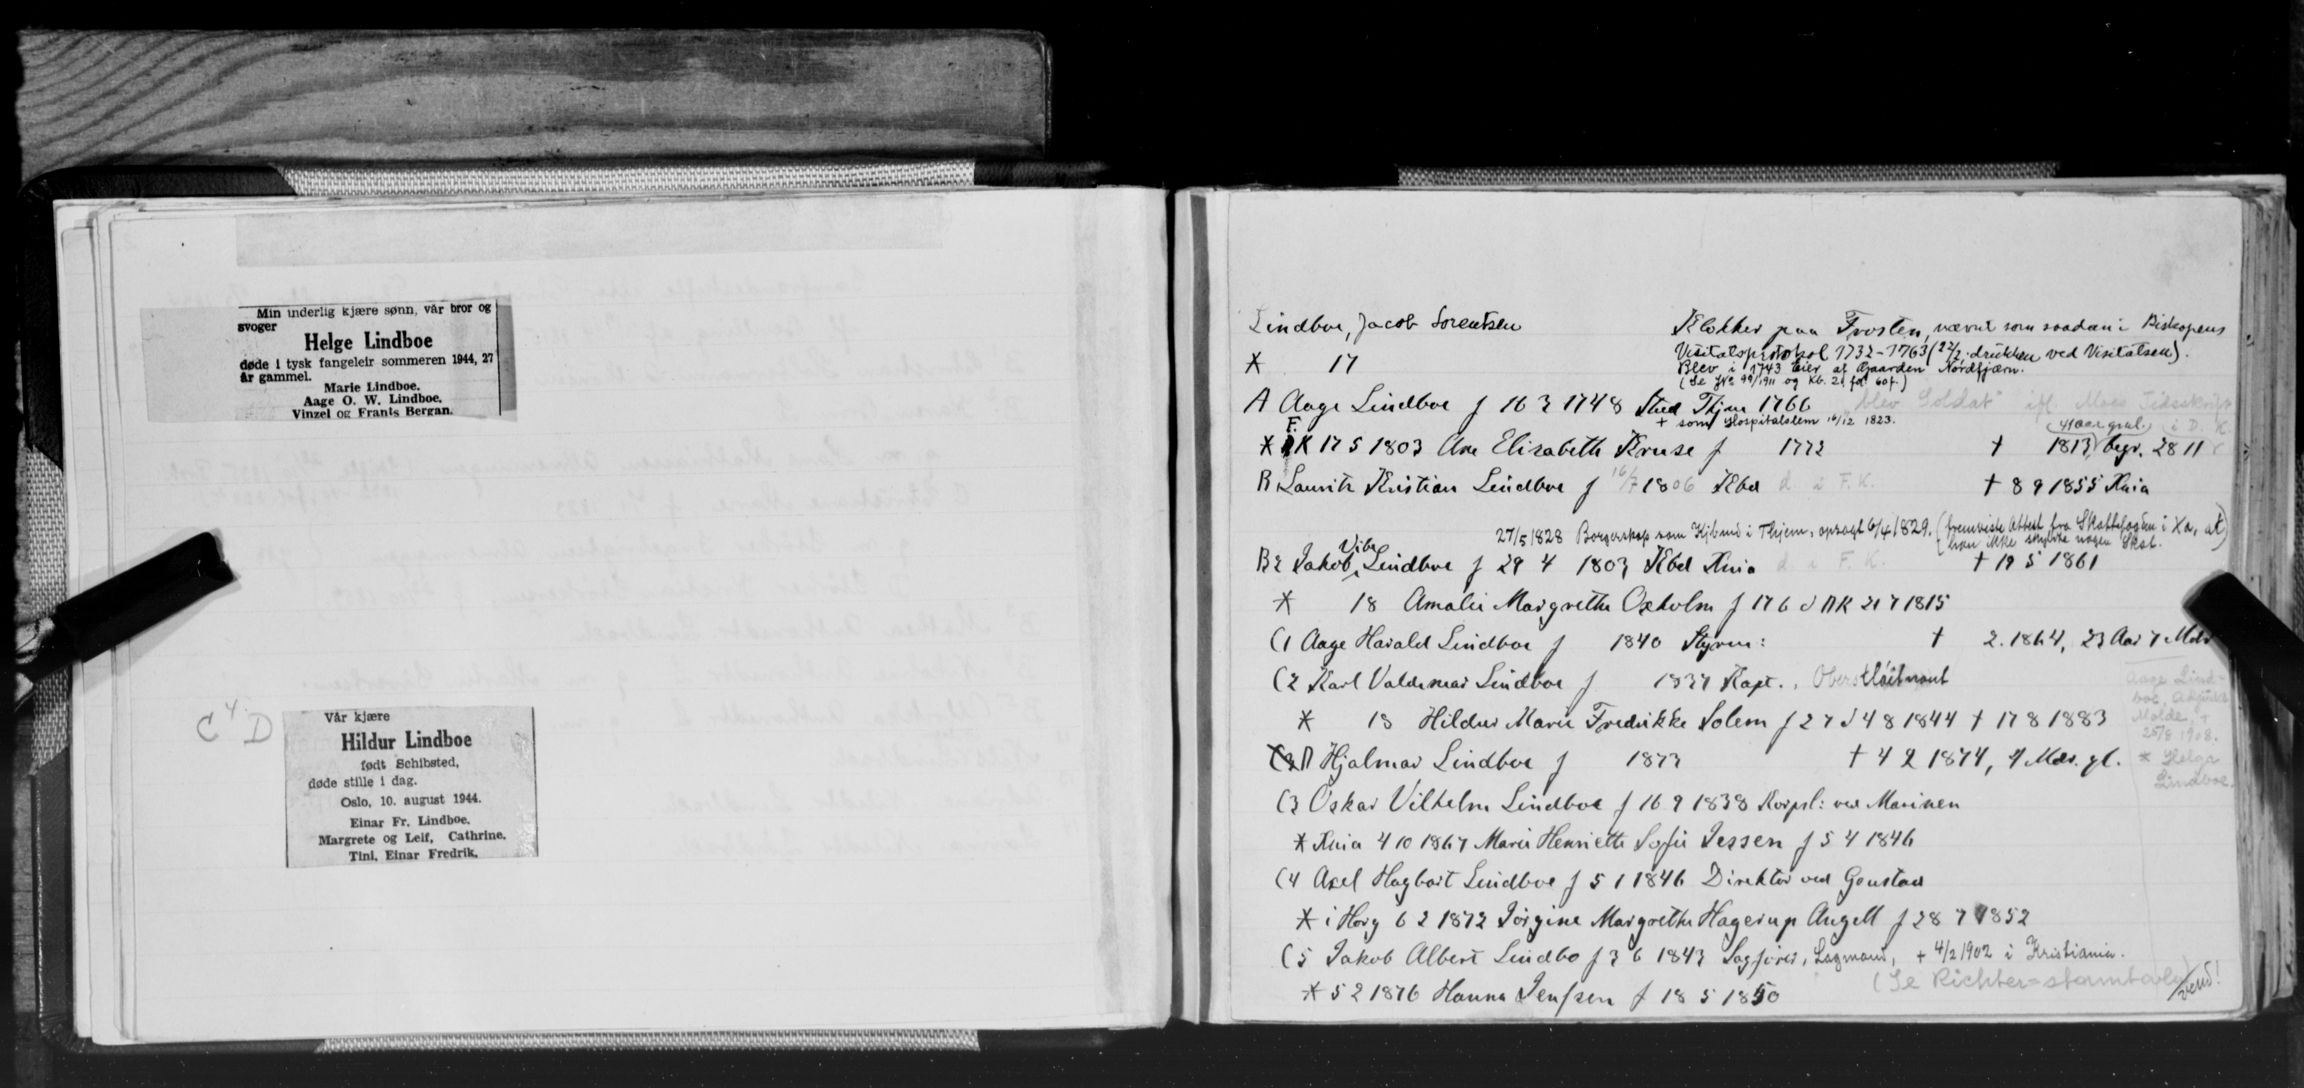 Min underlig kjære sønn, vår bror og
svoger
Helge Lindboe
døde i tysk fangeleir sommeren 1944, 27
år gammel.
Marie Lindboe.
Aage O. W. Lindboe.
Vinzel og Frants Bergan.
C4 D
Vår kjære
Hildur Lindboe
født Schibsted,
døde stille i dag.
Oslo, 10. august 1944.
Einar Fr. Lindboe.
Margrete og Leif, Cathrine,
Tini, Einar Fredrik.
Lindboe, Jacob Lorentsen Klokker paa Frosten, nævnt som saadan i Biskopens
Visitatsprotokol 1732-1763 (22/2, drukken ved Visitatsen).
* 17 Blev i 1743 Eier af Gaarden Nordfjærn.
(Se JNo 99/1911 og Kb. 21 fol 60f.)
A Aage Lindboe f 16 3 1748 Stud Thjm 1766 "blev Soldat" ifl. Moes Tidsskrift
+ som Hospitalslem 16/12 1823. (41 aar gml.) i D. K.
* F. K 17 5 1803 Ane Elisabeth Kruse f 1772 † 1813, begr. 28 11
B1 Lauritz Kristian Lindboe f 16/7 1806 Kbd d i F. K. † 8 9 1855 Knia
27/5 1828 Borgerskap som Kjbmd i Thjem, opsagt 6/4 1829. (fremviste Attest fra Skattefogden i Xa, at
han ikke skyldte nogen Skat.)
B2 Jakob Vibe Lindboe f 29 4 1803 Kbd Knia d. i F. K. † 19 5 1861
* 18 Amalie Margrethe Oxholm f 17 6 d DK 21 7 1815
C1 Aage Harald Lindboe f 1840 Styrm: † 2. 1864, 23 Aar 7 Mdr
C2 Karl Valdemar Lindboe f 1837 Kapt., Oberstløitnant
Aage Lindboe,
Molde, +
25/8 1908.
* Helga
Lindboe.
* 18 Hildur Marie Fredrikke Solem f 27 d 4 8 1844 † 17 8 1883
D Hjalmar Lindboe f 1873 † 4 2 1874, 9 Mdr. gl.
C3 Oskar Vilhelm Lindboe f 16 9 1838 Korpsl: ved Marinen
* Knia 4 10 1867 Marie Henriette Sofie Jessen f 5 4 1846
C4 Axel Hagbart Lindboe f 5 1 1846 Direktør ved Gaustad
* i Horg 6 2 1872 Jørgine Margrethe Hagerup Angell f 28 7 1852
C5 Jakob Albert Lindbo f 3 6 1843 Sagfører, Lagmand, + 4/2 1902 i Kristiania.
(Se Richter=stamtavle)
* 5 2 1876 Hanna Jenssen f 18 5 1850 vend!